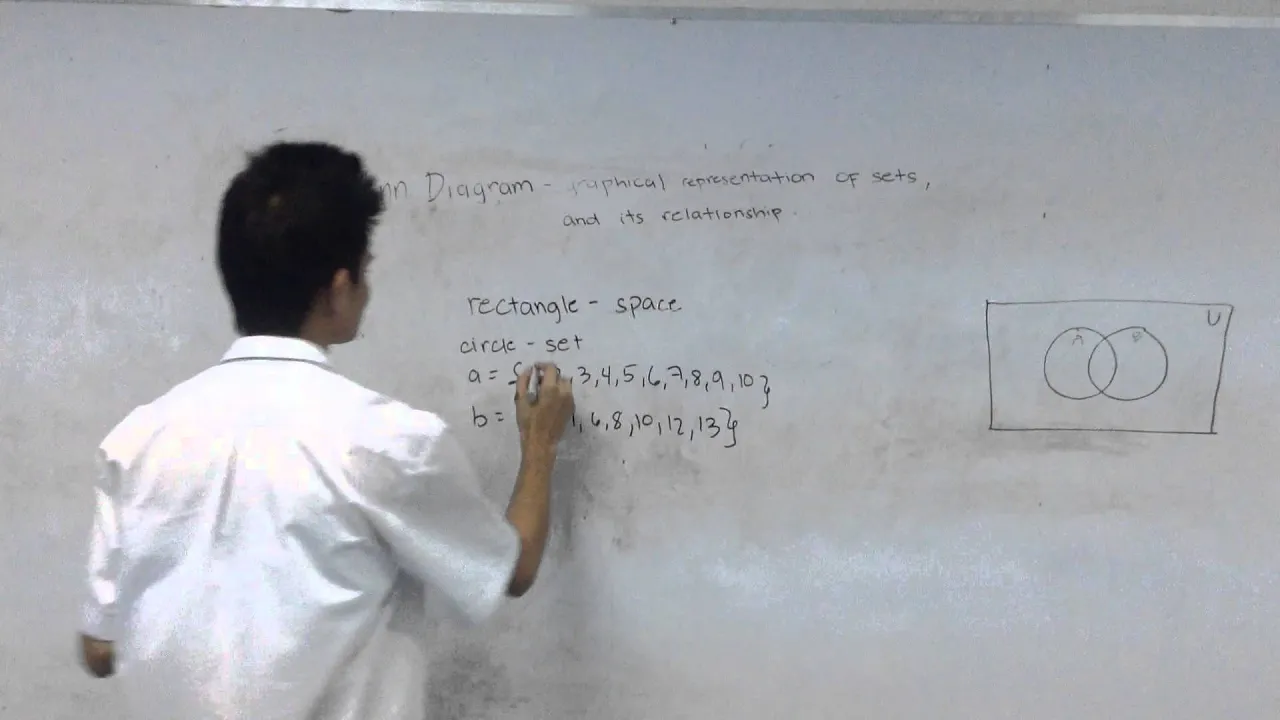 Diagram - graphical representation of sets,
and its relationship.
rectangle - space
circle - set
a = {   , 3, 4, 5, 6, 7, 8, 9, 10}
b =    , 6, 8, 10, 12, 13}
U
A B